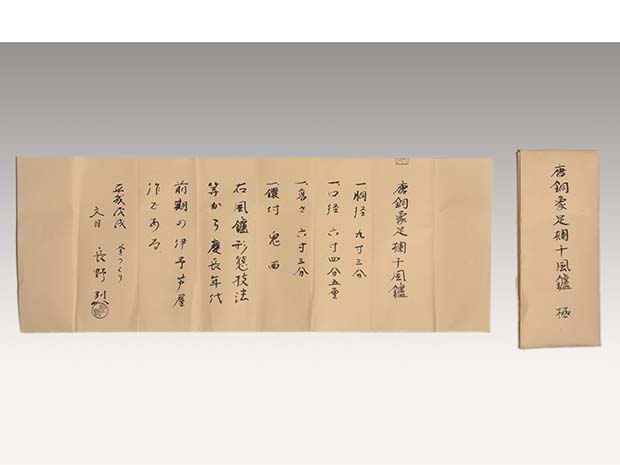 唐銅象足欄干風鑪
一胴径 九寸三分
一口径 六寸四分五重
一高さ 六寸三分
一鐶付 鬼面
右風鑪形態技法
等から慶長年代
前期の伊予芦屋
作である
平成戊戌 釜つくり
文月 長野烈
唐銅象足欄干風鑪 極